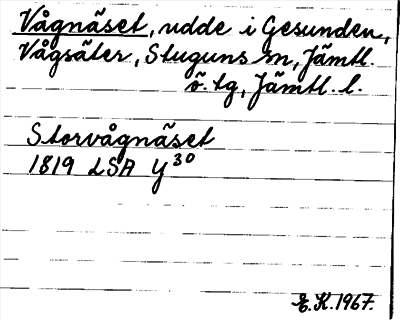 Vågnäset, udde i Gesunden,
Vågsäter, Stuguns sn, Jämtl.
ö. tg, Jämtl. l.
Storvågnäset
1819 LSA Y30
E.K.1967.